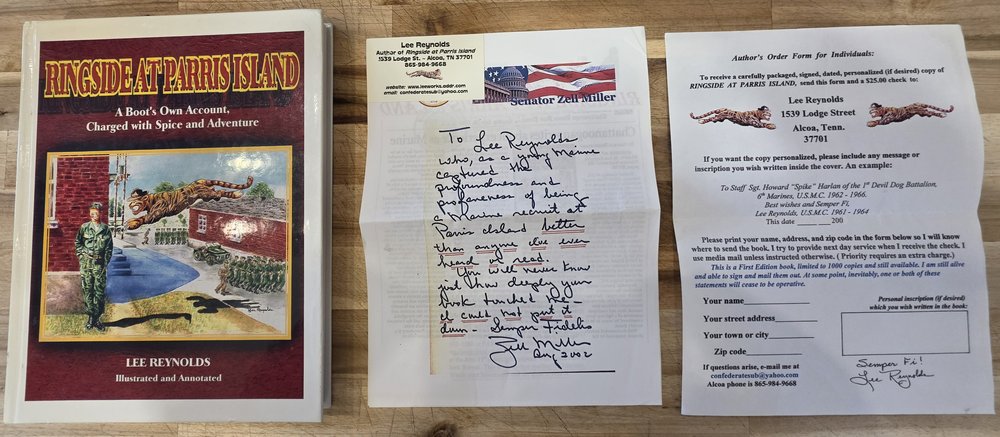 RINGSIDE AT PARRIS ISLAND
A Boot's Own Account,
Charged with Spice and Adventure
LEE REYNOLDS
Illustrated and Annotated
Lee Reynolds
Author of Ringside at Parris Island
1539 Lodge St. - Alcoa, TN 37701
865-984-9668
website: www.leeworks.addr.com
email: confederatesub@yahoo.com
Senator Zell Miller
To Lee Reynolds
who, as a young Marine
captured the
profoundness and
profaneness of being
a Marine recruit at
Parris Island better
than anyone I've ever
heard or read.
You will never know
just how deeply your
book touched me -
I could not put it
down - Semper Fidelis
Zell Miller
Aug 2002
Author's Order Form for Individuals:
To receive a carefully packaged, signed, dated, personalized (if desired) copy of
RINGSIDE AT PARRIS ISLAND, send this form and a $25.00 check to:
Lee Reynolds
1539 Lodge Street
Alcoa, Tenn.
37701
If you want the copy personalized, please include any message or
inscription you wish written inside the cover. An example:
To Staff Sgt. Howard "Spike" Harlan of the 1st Devil Dog Battalion,
6th Marines, U.S.M.C. 1962 - 1966.
Best wishes and Semper Fi,
Lee Reynolds, U.S.M.C. 1961 - 1964
This date _____ 200
Please print your name, address, and zip code in the form below so I will know
where to send the book. I try to provide next day service when I receive the check. I
use media mail unless instructed otherwise. ( Priority requires an extra charge.)
This is a First Edition book, limited to 1000 copies and still available. I am still alive
and able to sign and mail them out. At some point, inevitably, one or both of these
statements will cease to be operative.
Your name
Your street address
Your town or city
Zip code
Personal inscription (if desired)
which you wish written in the book:
If questions arise, e-mail me at
confederatesub@yahoo.com
Alcoa phone is 865-984-9668
Semper Fi!
Lee Reynolds